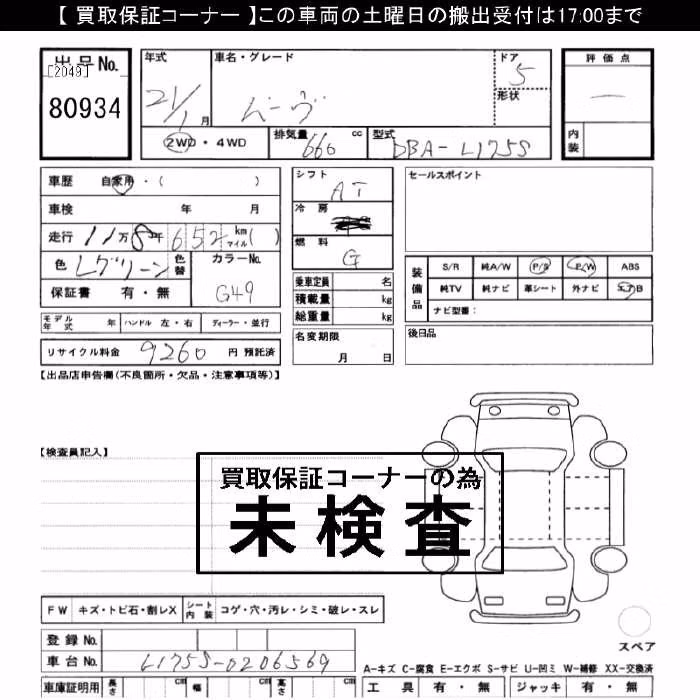 【 買取保証コーナー 】この車両の土曜日の搬出受付は17:00まで
出品No.
[2049]
80934
年式
21/1月
車名・グレード
ムーヴ
ドア
5
形状
評価点
内装
2WD・4WD
排気量
660 cc
型式
DBA-L175S
車歴 自家用・( )
車検 年 月
走行 11万8千652 km マイル( )
色 Lグリーン
色替
カラーNo.
G49
保証書 有・無
シフト
AT
冷房
燃料
G
乗車定員 名
積載量 kg
総重量 kg
名変期限
月 日
セールスポイント
装備品
S/R 純A/W P/S P/W ABS
純TV 純ナビ 革シート 外ナビ
ナビ型番:
後日品
モデル年式 年 ハンドル 左・右 ディーラー・並行
リサイクル料金 9260 円 預託済
【出品店申告欄(不良箇所・欠品・注意事項等)】
【検査員記入】
買取保証コーナーの為
未検査
FW キズ・トビ石・割レX シート内装 コゲ・穴・汚レ・シミ・破レ・スレ
登録No.
車台No. L175S-0206569
スペア
A-キズ C-腐食 E-エクボ S-サビ U-凹ミ W-補修 XX-交換済
車庫証明用 長さ cm 幅 cm 高さ cm
工具 有・無 ジャッキ 有・無